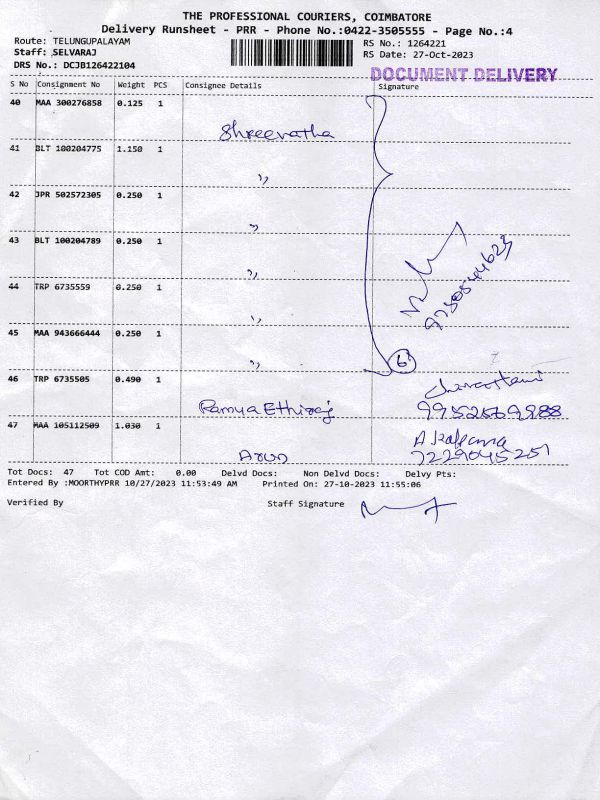 THE PROFESSIONAL COURIERS, COIMBATORE
Delivery Runsheet - PRR - Phone No.:0422-3505555 - Page No.:4
Route: TELUNGUPALAYAM
Staff: SELVARAJ
DRS No.: DCJB126422104
RS No.: 1264221
RS Date: 27-Oct-2023
DOCUMENT DELIVERY
S No Consignment No Weight PCS Consignee Details Signature
40 MAA 300276858 0.125 1
Shreevatha
41 BLT 100204775 1.150 1
"
42 JPR 502572305 0.250 1
"
43 BLT 100204789 0.250 1
"
44 TRP 6735559 0.250 1
"
45 MAA 943666444 0.250 1
"
6
46 TRP 6735505 0.490 1
Ramya Ethiraj 9952569988
47 MAA 105112509 1.030 1
A. Kalpana
Arun 7229045251
Tot Docs: 47 Tot COD Amt: 0.00 Delvd Docs: Non Delvd Docs: Delvy Pts:
Entered By :MOORTHYPRR 10/27/2023 11:53:49 AM Printed On: 27-10-2023 11:55:06
Verified By Staff Signature